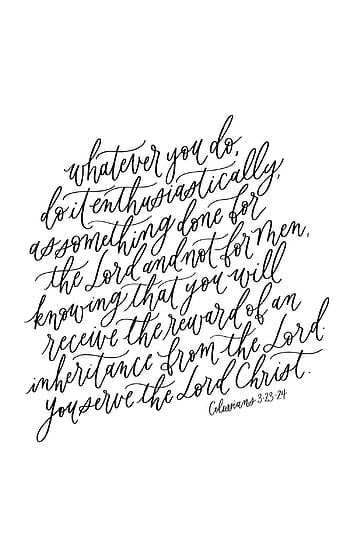 whatever you do,
do it enthusiastically,
as something done for
the Lord and not for men,
knowing that you will
receive the reward of an
inheritance from the Lord.
you serve the Lord Christ.
Colossians 3:23-24